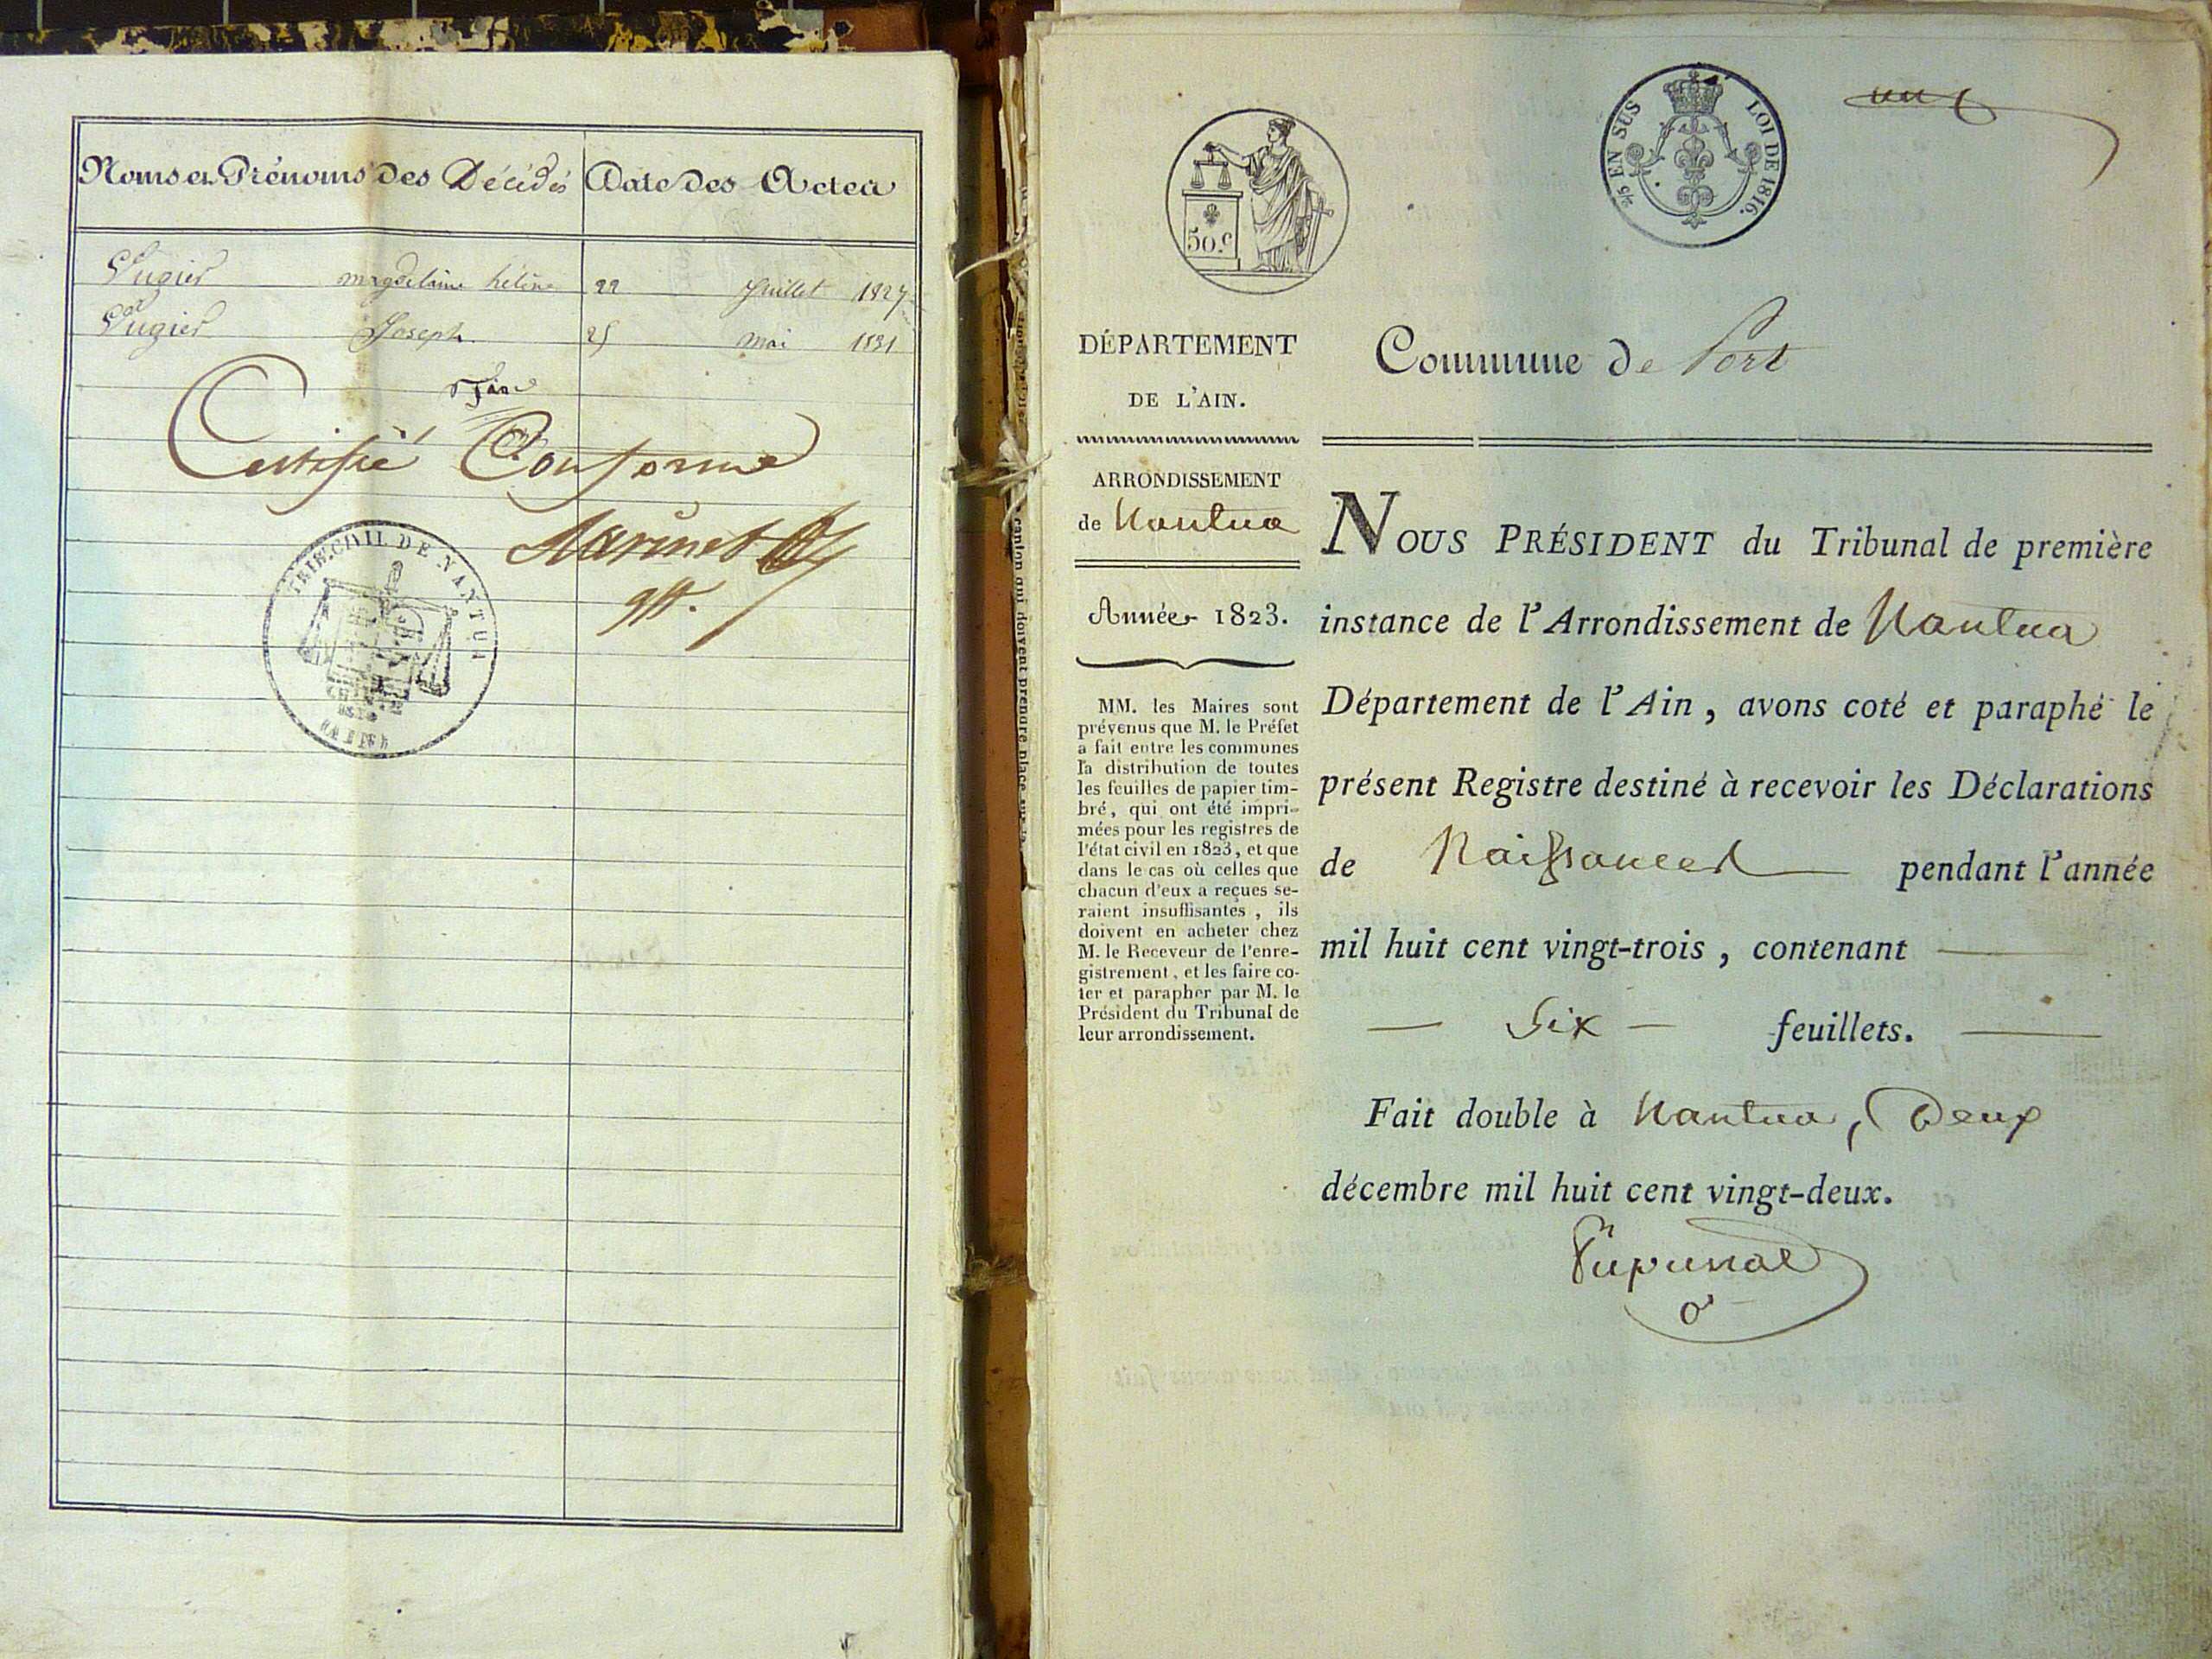 Noms et Prénoms des Décédés Date des Actes
Pugier magdelaine hélène 22 Juillet 1827
Pugier Joseph 25 mai 1831
Certifié Conforme
TRIB. CIVIL DE NANTUA
50.c
2/5 EN SUS LOI DE 1816.
un
DÉPARTEMENT
DE L'AIN.
ARRONDISSEMENT
de Nantua
Année 1823.
MM. les Maires sont
prévenus que M. le Préfet
a fait entre les communes
la distribution de toutes
les feuilles de papier tim-
bré, qui ont été impri-
mées pour les registres de
l'état civil en 1823, et que
dans le cas où celles que
chacun d'eux a reçues se-
raient insuffisantes, ils
doivent en acheter chez
M. le Receveur de l'enre-
gistrement, et les faire co-
ter et parapher par M. le
Président du Tribunal de
leur arrondissement.
Commune de Port
NOUS PRÉSIDENT du Tribunal de première
instance de l'Arrondissement de Nantua
Département de l'Ain, avons coté et paraphé le
présent Registre destiné à recevoir les Déclarations
de Naissances pendant l'année
mil huit cent vingt-trois, contenant
— Six — feuillets.
Fait double à Nantua, Deux
décembre mil huit cent vingt-deux.